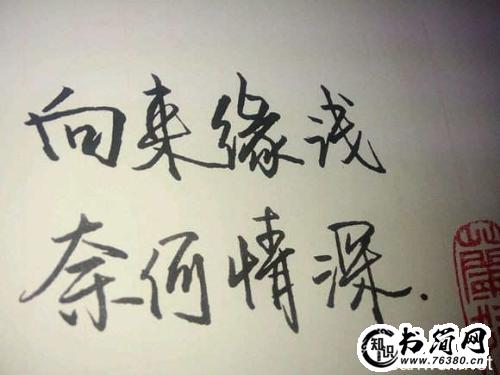 向来缘浅
奈何情深.
知识 书简网
www.76380.cn